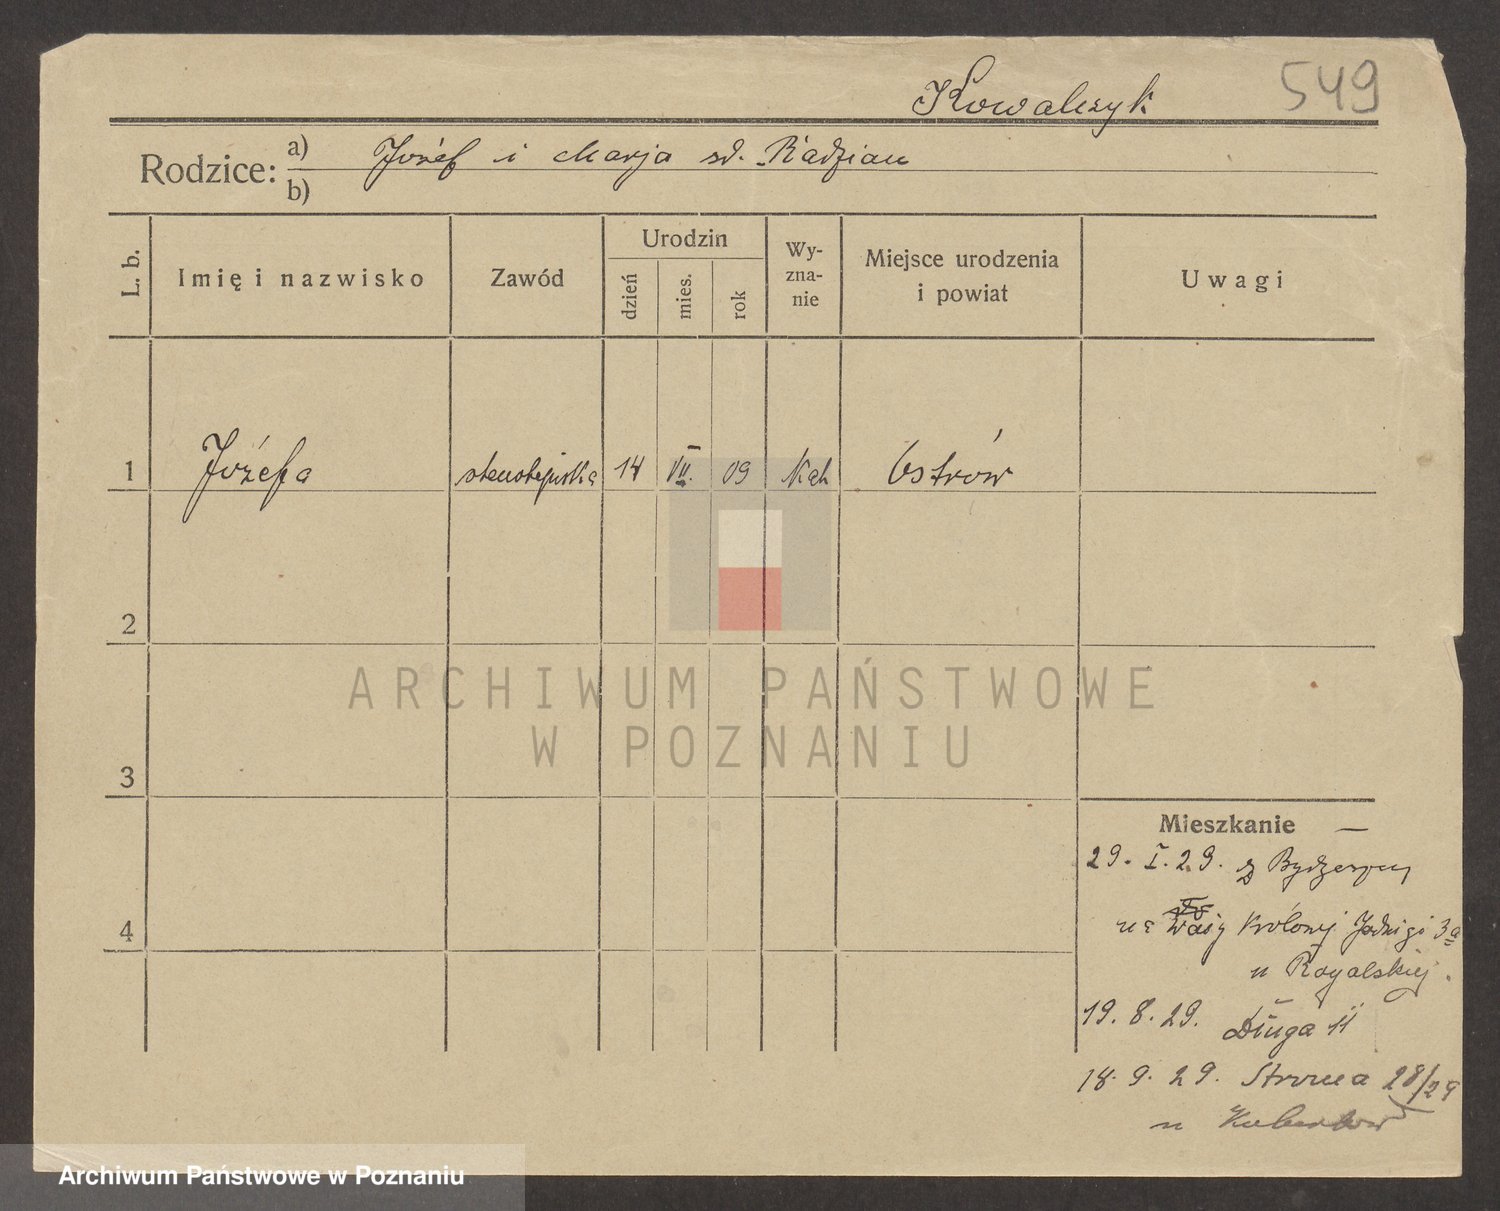 Kowalczyk 549
Rodzice: a) Józef i Marja zd. Radziau
b)
L. b.
Imię i nazwisko
Zawód
Urodzin
dzień
mies.
rok
Wy-
zna-
nie
Miejsce urodzenia
i powiat
Uwagi
1 Józefa stenotypistka 14 VII. 09 Kat Ostrów
2
3
4
ARCHIWUM PAŃSTWOWE
W POZNANIU
Mieszkanie —
29. I. 29. z Bydgoszczy
na Królowej Jadwigi 3a
u Rogalskiej.
19. 8. 29. Długa 11
18. 9. 29. Strona 28/29
u
Archiwum Państwowe w Poznaniu